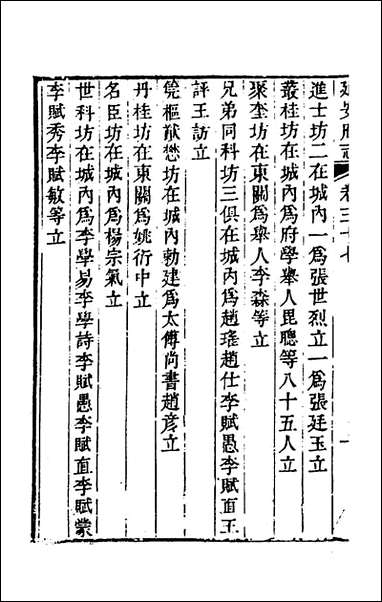 延安府志 卷三十七
進士坊二在城內一爲張世烈立一爲張廷玉立
叢桂坊在城內爲府學舉人毘聰等八十五人立
聚奎坊在東關爲舉人李森等立
兄弟同科坊三俱在城內爲趙瑤趙仕李賦愚李賦直王
評王訪立
筦樞猷懋坊在城內勅建爲太傅尚書趙彥立
丹桂坊在東關爲姚衍中立
名臣坊在城內爲楊宗氣立
世科坊在城內爲李學易李學詩李賦愚李賦直李賦蒙
李賦秀李賦敏等立